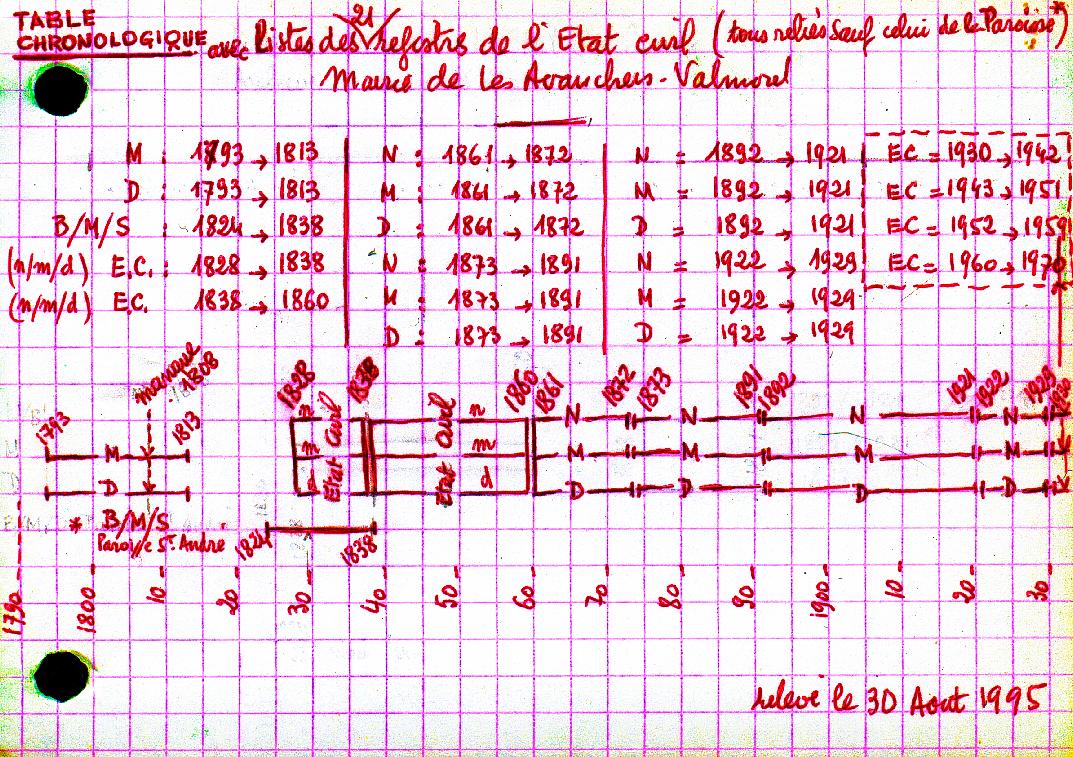 TABLE
CHRONOLOGIQUE avec listes des 21 registres de l'Etat civil (tous reliés sauf celui de la Paroisse*)
Mairie de Les Avanchers-Valmorel
M : 1793 → 1813
D : 1793 → 1813
B/M/S : 1824 → 1838
(n/m/d) E.C. : 1828 → 1838
(n/m/d) E.C. 1838 → 1860
N : 1861 → 1872
M : 1861 → 1872
D : 1861 → 1872
N : 1873 → 1891
M : 1873 → 1891
D : 1873 → 1891
N = 1892 → 1921
M = 1892 → 1921
D = 1892 → 1921
N = 1922 → 1929
M = 1922 → 1929
D = 1922 → 1929
EC = 1930 → 1942
EC = 1943 → 1951
EC = 1952 → 1959
EC = 1960 → 1970
manque 1808
1793 1813 1828 1838 1860 1861 1872 1873 1891 1892 1921 1922 1929 1930
n Etat Civil n Etat Civil N N N N
M m m M M M M
D d d D D D D
* B/M/S
Paroisse St. André 1824 1838
1790 1800 10 20 30 40 50 60 70 80 90 1900 10 20 30
relevé le 30 Aout 1995